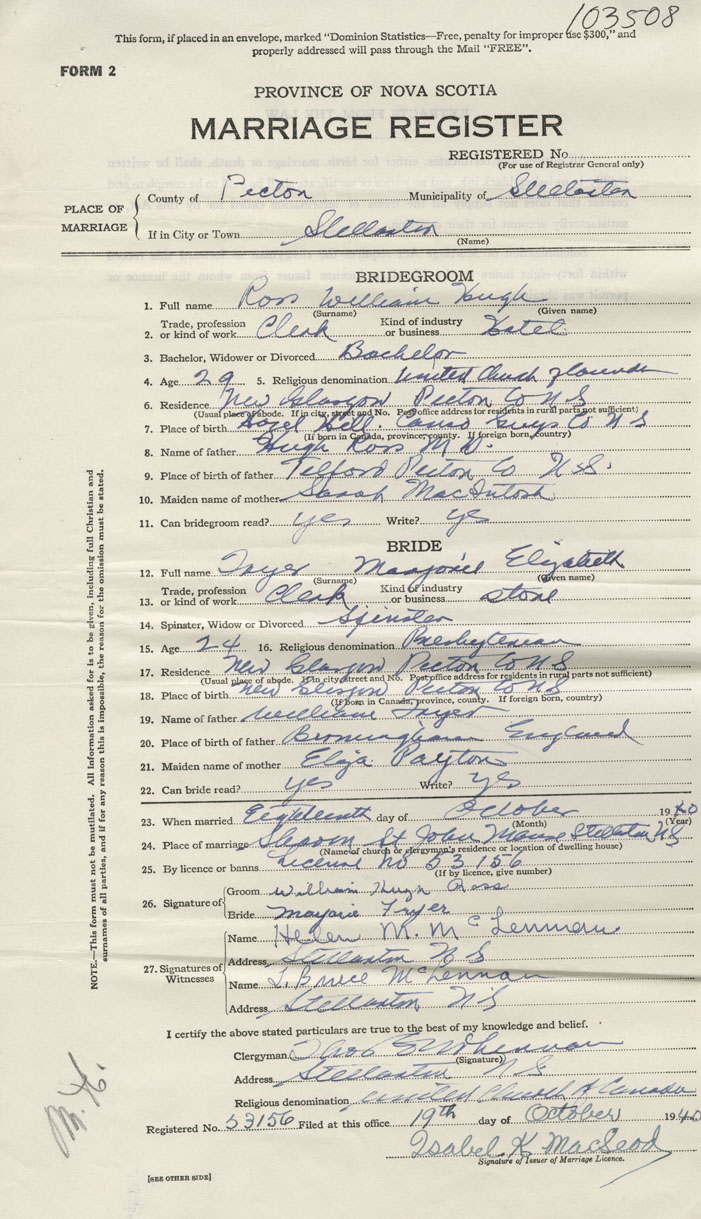 103508
This form, if placed in an envelope, marked "Dominion Statistics—Free, penalty for improper use $300," and
properly addressed will pass through the Mail "FREE".
FORM 2
PROVINCE OF NOVA SCOTIA
MARRIAGE REGISTER
REGISTERED No.
(For use of Registrar General only)
PLACE OF MARRIAGE
County of Pictou Municipality of Stellarton
If in City or Town Stellarton
(Name)
BRIDEGROOM
1. Full name Ross William Hugh
(Surname) (Given name)
2. Trade, profession or kind of work Clerk Kind of industry or business Hotel
3. Bachelor, Widower or Divorced Bachelor
4. Age 29 5. Religious denomination United Church of Canada
6. Residence New Glasgow Pictou Co N S
(Usual place of abode. If in city, street and No. Post office address for residents in rural parts not sufficient)
7. Place of birth Hazel Hill. Canso Guys Co N S
(If born in Canada, province, county. If foreign born, country)
8. Name of father Hugh Ross M.D.
9. Place of birth of father Telford Pictou Co N.S.
10. Maiden name of mother Sarah MacIntosh
11. Can bridegroom read? yes Write? ye
BRIDE
12. Full name Fryer Marjorie Elizabeth
(Surname) (Given name)
13. Trade, profession or kind of work Clerk Kind of industry or business store
14. Spinster, Widow or Divorced Spinster
15. Age 24 16. Religious denomination Presbyterian
17. Residence New Glasgow Pictou Co N S
(Usual place of abode. If in city, street and No. Post office address for residents in rural parts not sufficient)
18. Place of birth New Glasgow Pictou Co N S
(If born in Canada, province, county. If foreign born, country)
19. Name of father William Fryer
20. Place of birth of father Bromingham England
21. Maiden name of mother Eliza Payton
22. Can bride read? yes Write? yes
23. When married Eighteenth day of October 1940
(Month) (Year)
24. Place of marriage Sharon St John Manse Stellarton N S
(Name of church or clergyman's residence or location of dwelling house)
25. By licence or banns License no 53156
(If by licence, give number)
26. Signature of
Groom William Hugh Ross
Bride Marjorie Fryer
27. Signatures of Witnesses
Name Helen M. McLennan
Address Stellarton N S
Name Bruce McLennan
Address Stellarton N S
I certify the above stated particulars are true to the best of my knowledge and belief.
Clergyman
(Signature)
Address Stellarton N.S.
Religious denomination United Church of Canada
Registered No. 53156 Filed at this office 19th day of October 1940
Isabel K MacLeod
Signature of Issuer of Marriage Licence.
[SEE OTHER SIDE]
NOTE.—This form must not be mutilated. All information asked for is to be given, including full Christian and
surnames of all parties, and if for any reason this is impossible, the reason for the omission must be stated.